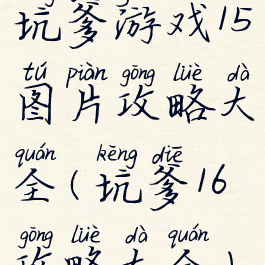 坑爹游戏15
tú piàn gōng lüè dà
图片攻略大
quán kēng diē
全(坑爹16
gōng lüè dà quán
攻略大全)